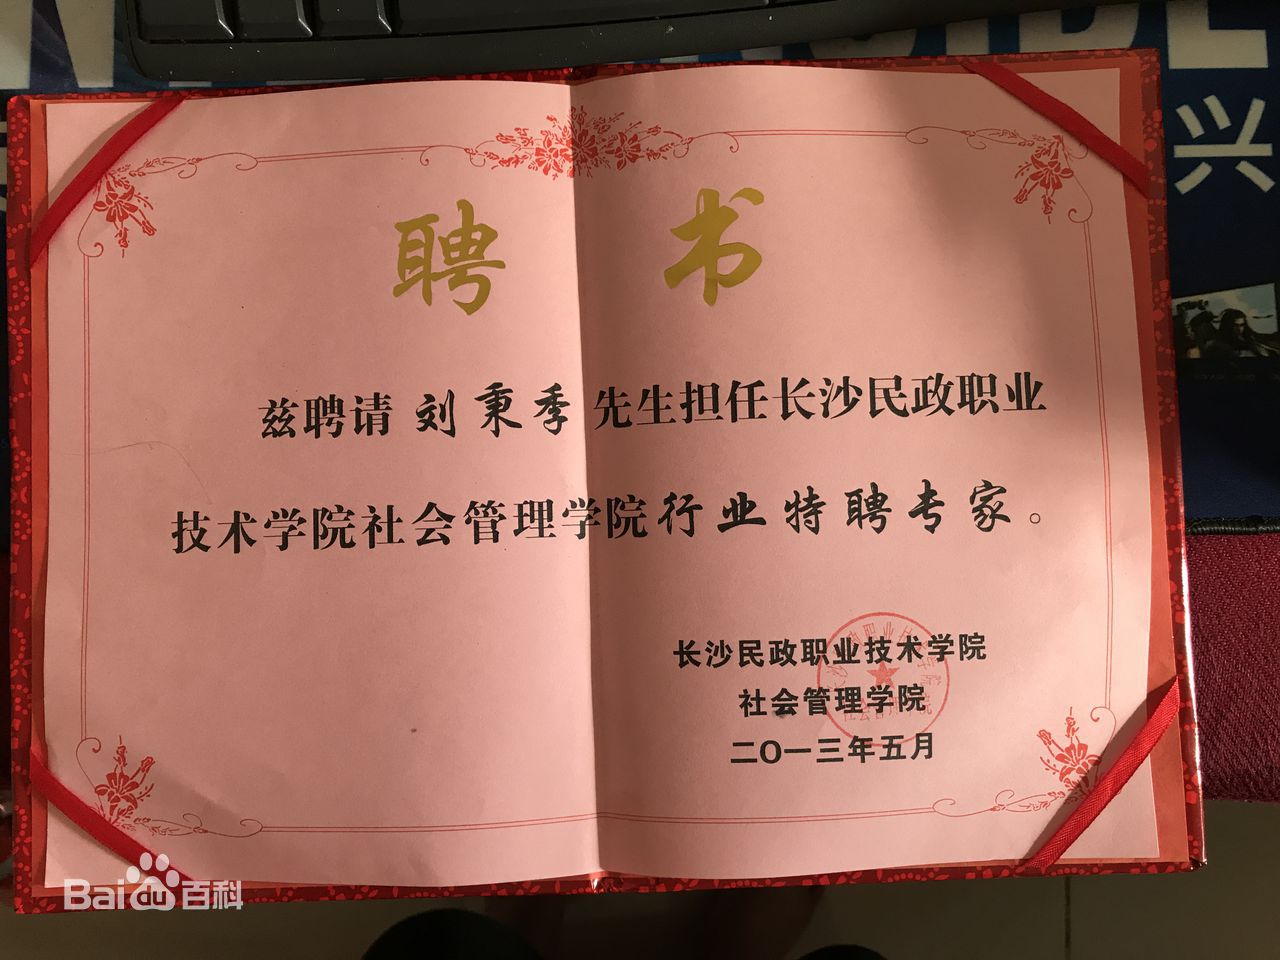 聘 书
兹聘请 刘秉季 先生担任长沙民政职业
技术学院社会管理学院行业特聘专家。
长沙民政职业技术学院
社会管理学院
二〇一三年五月
兴
Bai du 百科